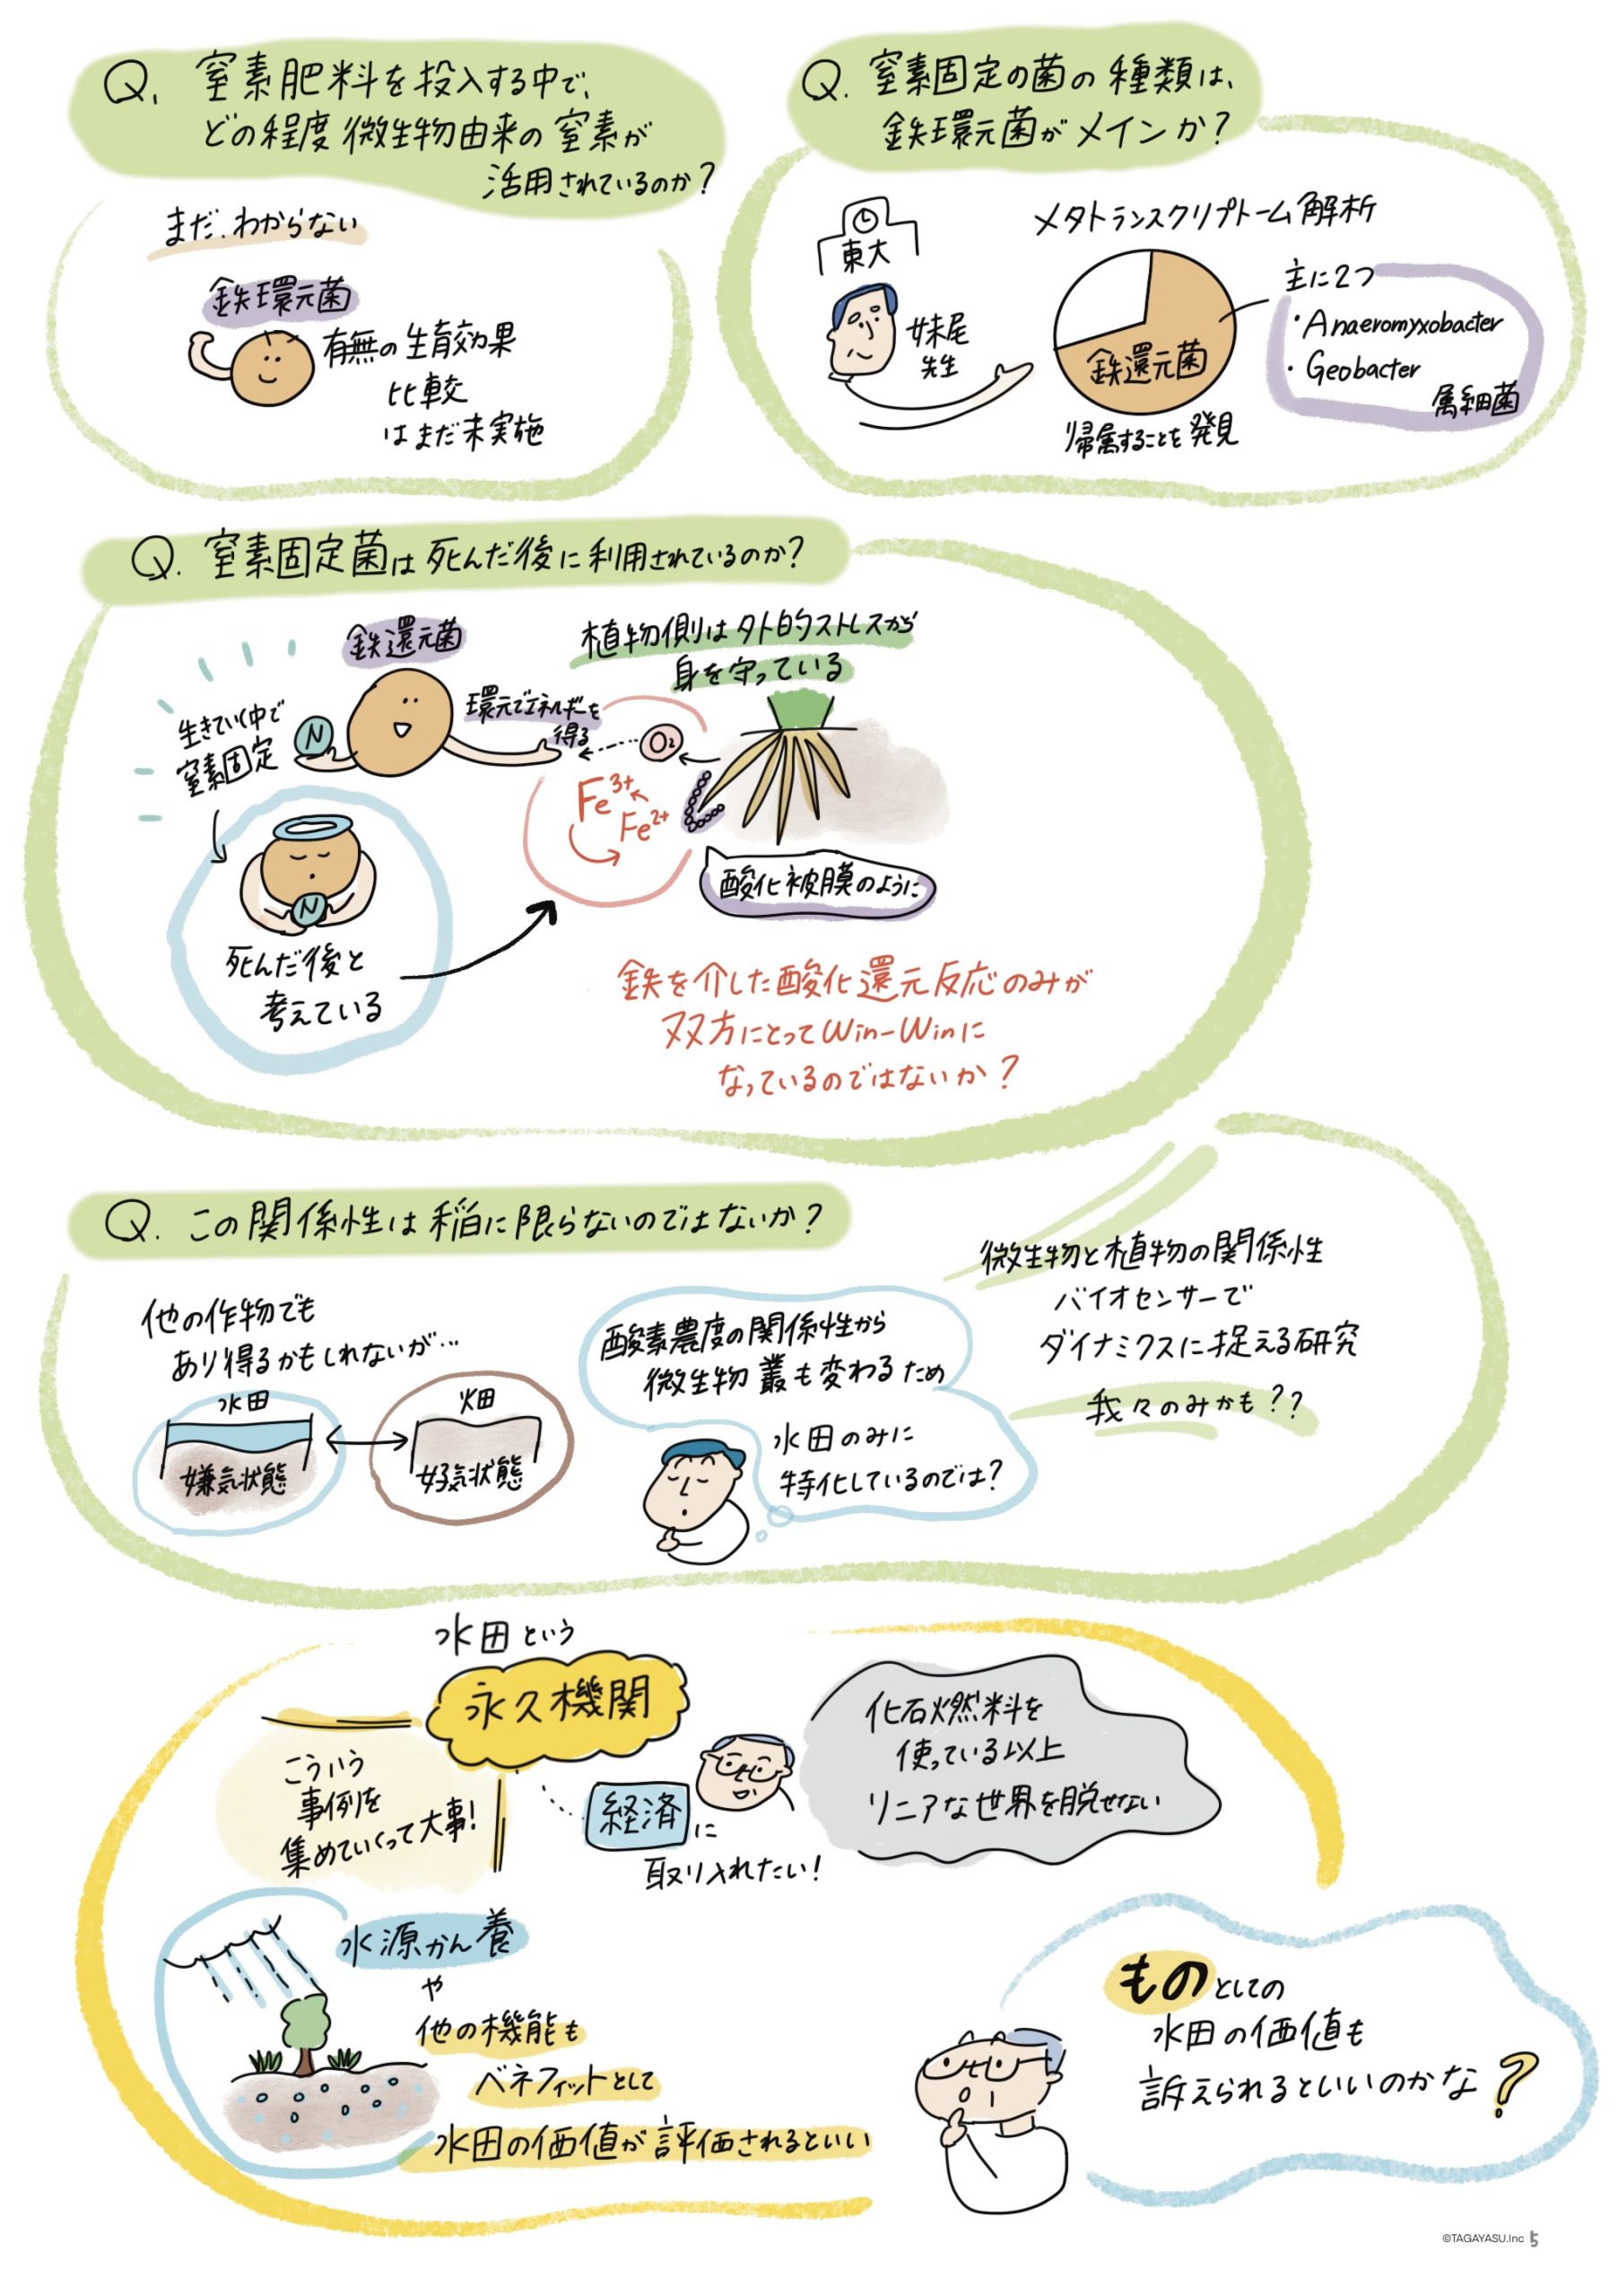 Q. 窒素肥料を投入する中で、
どの程度 微生物由来の窒素が
活用されているのか？
まだ、わからない
鉄環元菌
有無の生育効果
比較
はまだ未実施
Q. 窒素固定の菌の種類は、
鉄環元菌がメインか？
東大
妹尾
先生
メタトランスクリプトーム解析
鉄還元菌
帰属することを発見
主に2つ
・Anaeromyxobacter
・Geobacter
属細菌
Q. 窒素固定菌は死んだ後に利用されているのか？
鉄還元菌
生きていく中で
窒素固定
N
環元でエネルギーを
得る
O₂
Fe³⁺
Fe²⁺
植物側は外的ストレスから
身を守っている
酸化被膜のように
N
死んだ後と
考えている
鉄を介した酸化還元反応のみが
双方にとってWin-Winに
なっているのではないか？
Q. この関係性は稲に限らないのではないか？
他の作物でも
あり得るかもしれないが…
水田
嫌気状態
畑
好気状態
酸素農度の関係性から
微生物叢も変わるため
水田のみに
特化しているのでは？
微生物と植物の関係性
バイオセンサーで
ダイナミクスに捉える研究
我々のみかも？？
水田という
永久機関
こういう
事例を
集めていくって大事！
経済に
取り入れたい！
化石燃料を
使っている以上
リニアな世界を脱せない
水源かん養
や
他の機能も
ベネフィットとして
水田の価値が評価されるといい
ものとしての
水田の価値も
訴えられるといいのかな？
©TAGAYASU.Inc